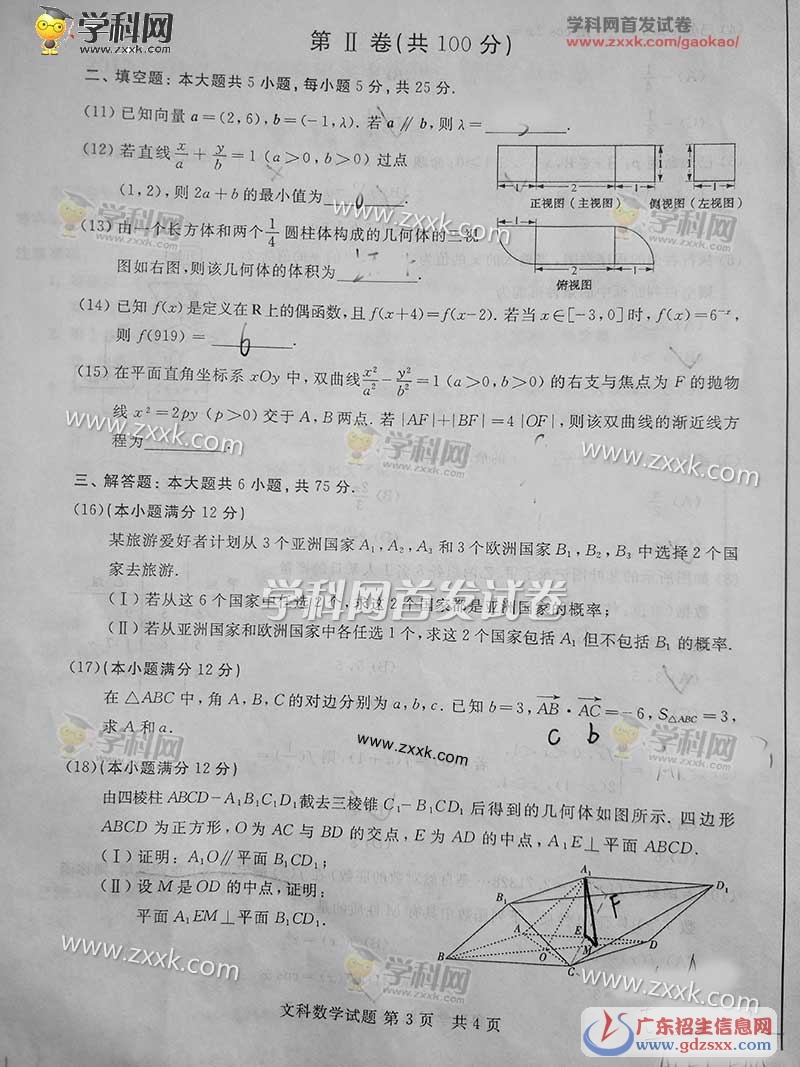 学科网
www.zxxk.com
学科网首发试卷
www.zxxk.com/gaokao/
第 Ⅱ 卷(共 100 分)
二、填空题：本大题共 5 小题，每小题 5 分，共 25 分.
(11) 已知向量 a=(2,6),b=(-1,λ). 若 a∥b,则 λ=________.
(12) 若直线 x/a + y/b = 1 (a>0,b>0) 过点
(1,2),则 2a+b 的最小值为________.
正视图（主视图） 侧视图（左视图）
(13) 由一个长方体和两个 1/4 圆柱体构成的几何体的三视
图如右图,则该几何体的体积为________.
俯视图
(14) 已知 f(x)是定义在 R 上的偶函数,且 f(x+4)=f(x-2). 若当 x∈[-3,0]时, f(x)=6^{-x},
则 f(919) = 6 .
(15) 在平面直角坐标系 xOy 中,双曲线 x²/a² - y²/b² = 1 (a>0,b>0) 的右支与焦点为 F 的抛物
线 x²=2py (p>0) 交于 A,B 两点. 若 |AF|+|BF|=4|OF|,则该双曲线的渐近线方
程为________.
三、解答题：本大题共 6 小题,共 75 分.
(16)(本小题满分 12 分)
某旅游爱好者计划从 3 个亚洲国家 A₁,A₂,A₃ 和 3 个欧洲国家 B₁,B₂,B₃ 中选择 2 个国
家去旅游.
(Ⅰ) 若从这 6 个国家中任选 2 个,求这 2 个国家都是亚洲国家的概率;
(Ⅱ) 若从亚洲国家和欧洲国家中各任选 1 个,求这 2 个国家包括 A₁ 但不包括 B₁ 的概率.
(17)(本小题满分 12 分)
在 △ABC 中,角 A,B,C 的对边分别为 a,b,c. 已知 b=3, AB·AC=-6, S△ABC=3,
求 A 和 a.
c b
(18)(本小题满分 12 分)
由四棱柱 ABCD-A₁B₁C₁D₁ 截去三棱锥 C₁-B₁CD₁ 后得到的几何体如图所示. 四边形
ABCD 为正方形,O 为 AC 与 BD 的交点,E 为 AD 的中点,A₁E⊥平面 ABCD.
(Ⅰ) 证明: A₁O∥平面 B₁CD₁;
(Ⅱ) 设 M 是 OD 的中点,证明:
平面 A₁EM⊥平面 B₁CD₁.
A₁
D₁
B₁
F
A
E
M
D
O
B
C
文科数学试题 第 3 页 共 4 页
广东招生信息网
www.gdzsxx.com